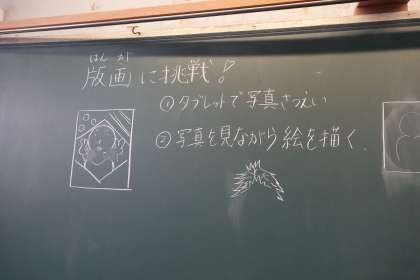 はんが
版画に挑戦!
①タブレットで写真さつえい
②写真を見ながら絵を描く.